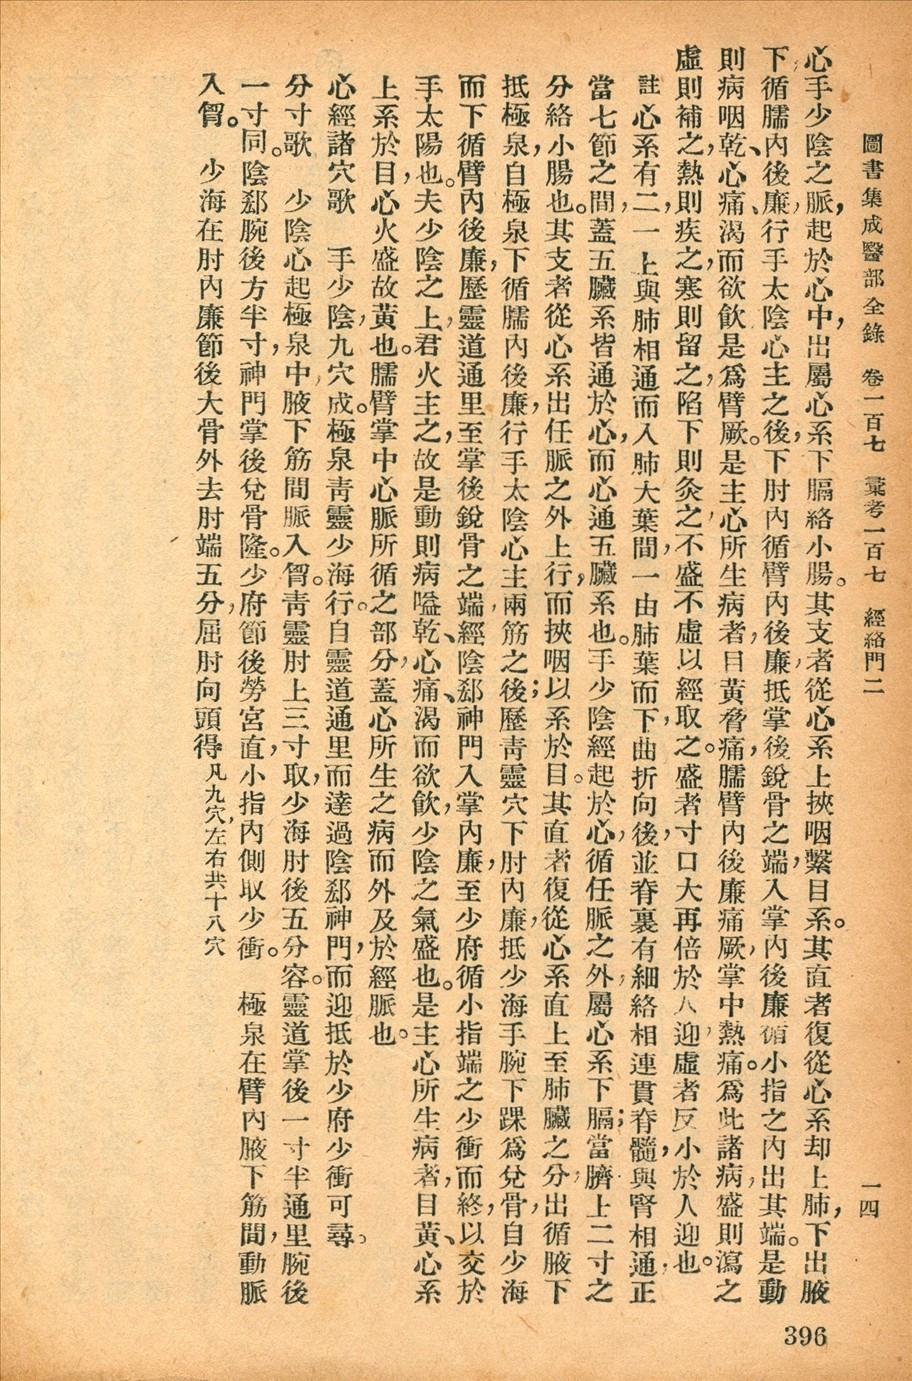 圖書集成醫部全錄　卷一百七　彙考一百七　經絡門二　一四
心手少陰之脈，起於心中，出屬心系，下膈絡小腸。其支者，從心系上挾咽繫目系。其直者，復從心系却上肺，下出腋
下，循臑內後廉，行手太陰心主之後，下肘內，循臂內後廉，抵掌後銳骨之端，入掌內後廉，循小指之內出其端。是動
則病咽乾、心痛、渴而欲飲，是爲臂厥。是主心所生病者，目黃脅痛，臑臂內後廉痛厥，掌中熱痛。爲此諸病，盛則瀉之，
虛則補之，熱則疾之，寒則留之，陷下則灸之，不盛不虛，以經取之。盛者，寸口大再倍於人迎，虛者，反小於人迎也。
註　心系有二，一上與肺相通而入肺大葉間，一由肺葉而下，曲折向後，並脊裏，有細絡相連，貫脊髓，與腎相通，正
當七節之間，蓋五臟系皆通於心，而心通五臟系也。手少陰經起於心，循任脈之外，屬心系，下膈，當臍上二寸之
分絡小腸也。其支者，從心系出任脈之外，上行而挾咽，以系於目。其直者，復從心系直上至肺臟之分，出循腋下，
抵極泉，自極泉下循臑內後廉，行手太陰心主兩筋之後，歷靑靈穴，下肘內廉，抵少海，手腕下踝爲兌骨，自少海
而下循臂內後廉，歷靈道通里，至掌後銳骨之端，經陰郄神門，入掌內廉，至少府，循小指端之少衝而終，以交於
手太陽也。夫少陰之上，君火主之，故是動則病嗌乾、心痛、渴而欲飲，少陰之氣盛也。是主心所生病者，目黃、心系
上系於目，心火盛故黃也。臑臂掌中，心脈所循之部分，蓋心所生之病而外及於經脈也。
心經諸穴歌　手少陰，九穴成。極泉靑靈少海行。自靈道通里而達，過陰郄神門，而迎抵於少府少衝可尋。
分寸歌　少陰心起極泉中，腋下筋間脈入胷。靑靈肘上三寸取，少海肘後五分容。靈道掌後一寸半，通里腕後
一寸同。陰郄腕後方半寸，神門掌後兌骨隆。少府節後勞宮直，小指內側取少衝。　極泉在臂內腋下筋間，動脈
入胷。　少海在肘內廉節後大骨外去肘端五分，屈肘向頭得　凡九穴，左右共十八穴
396